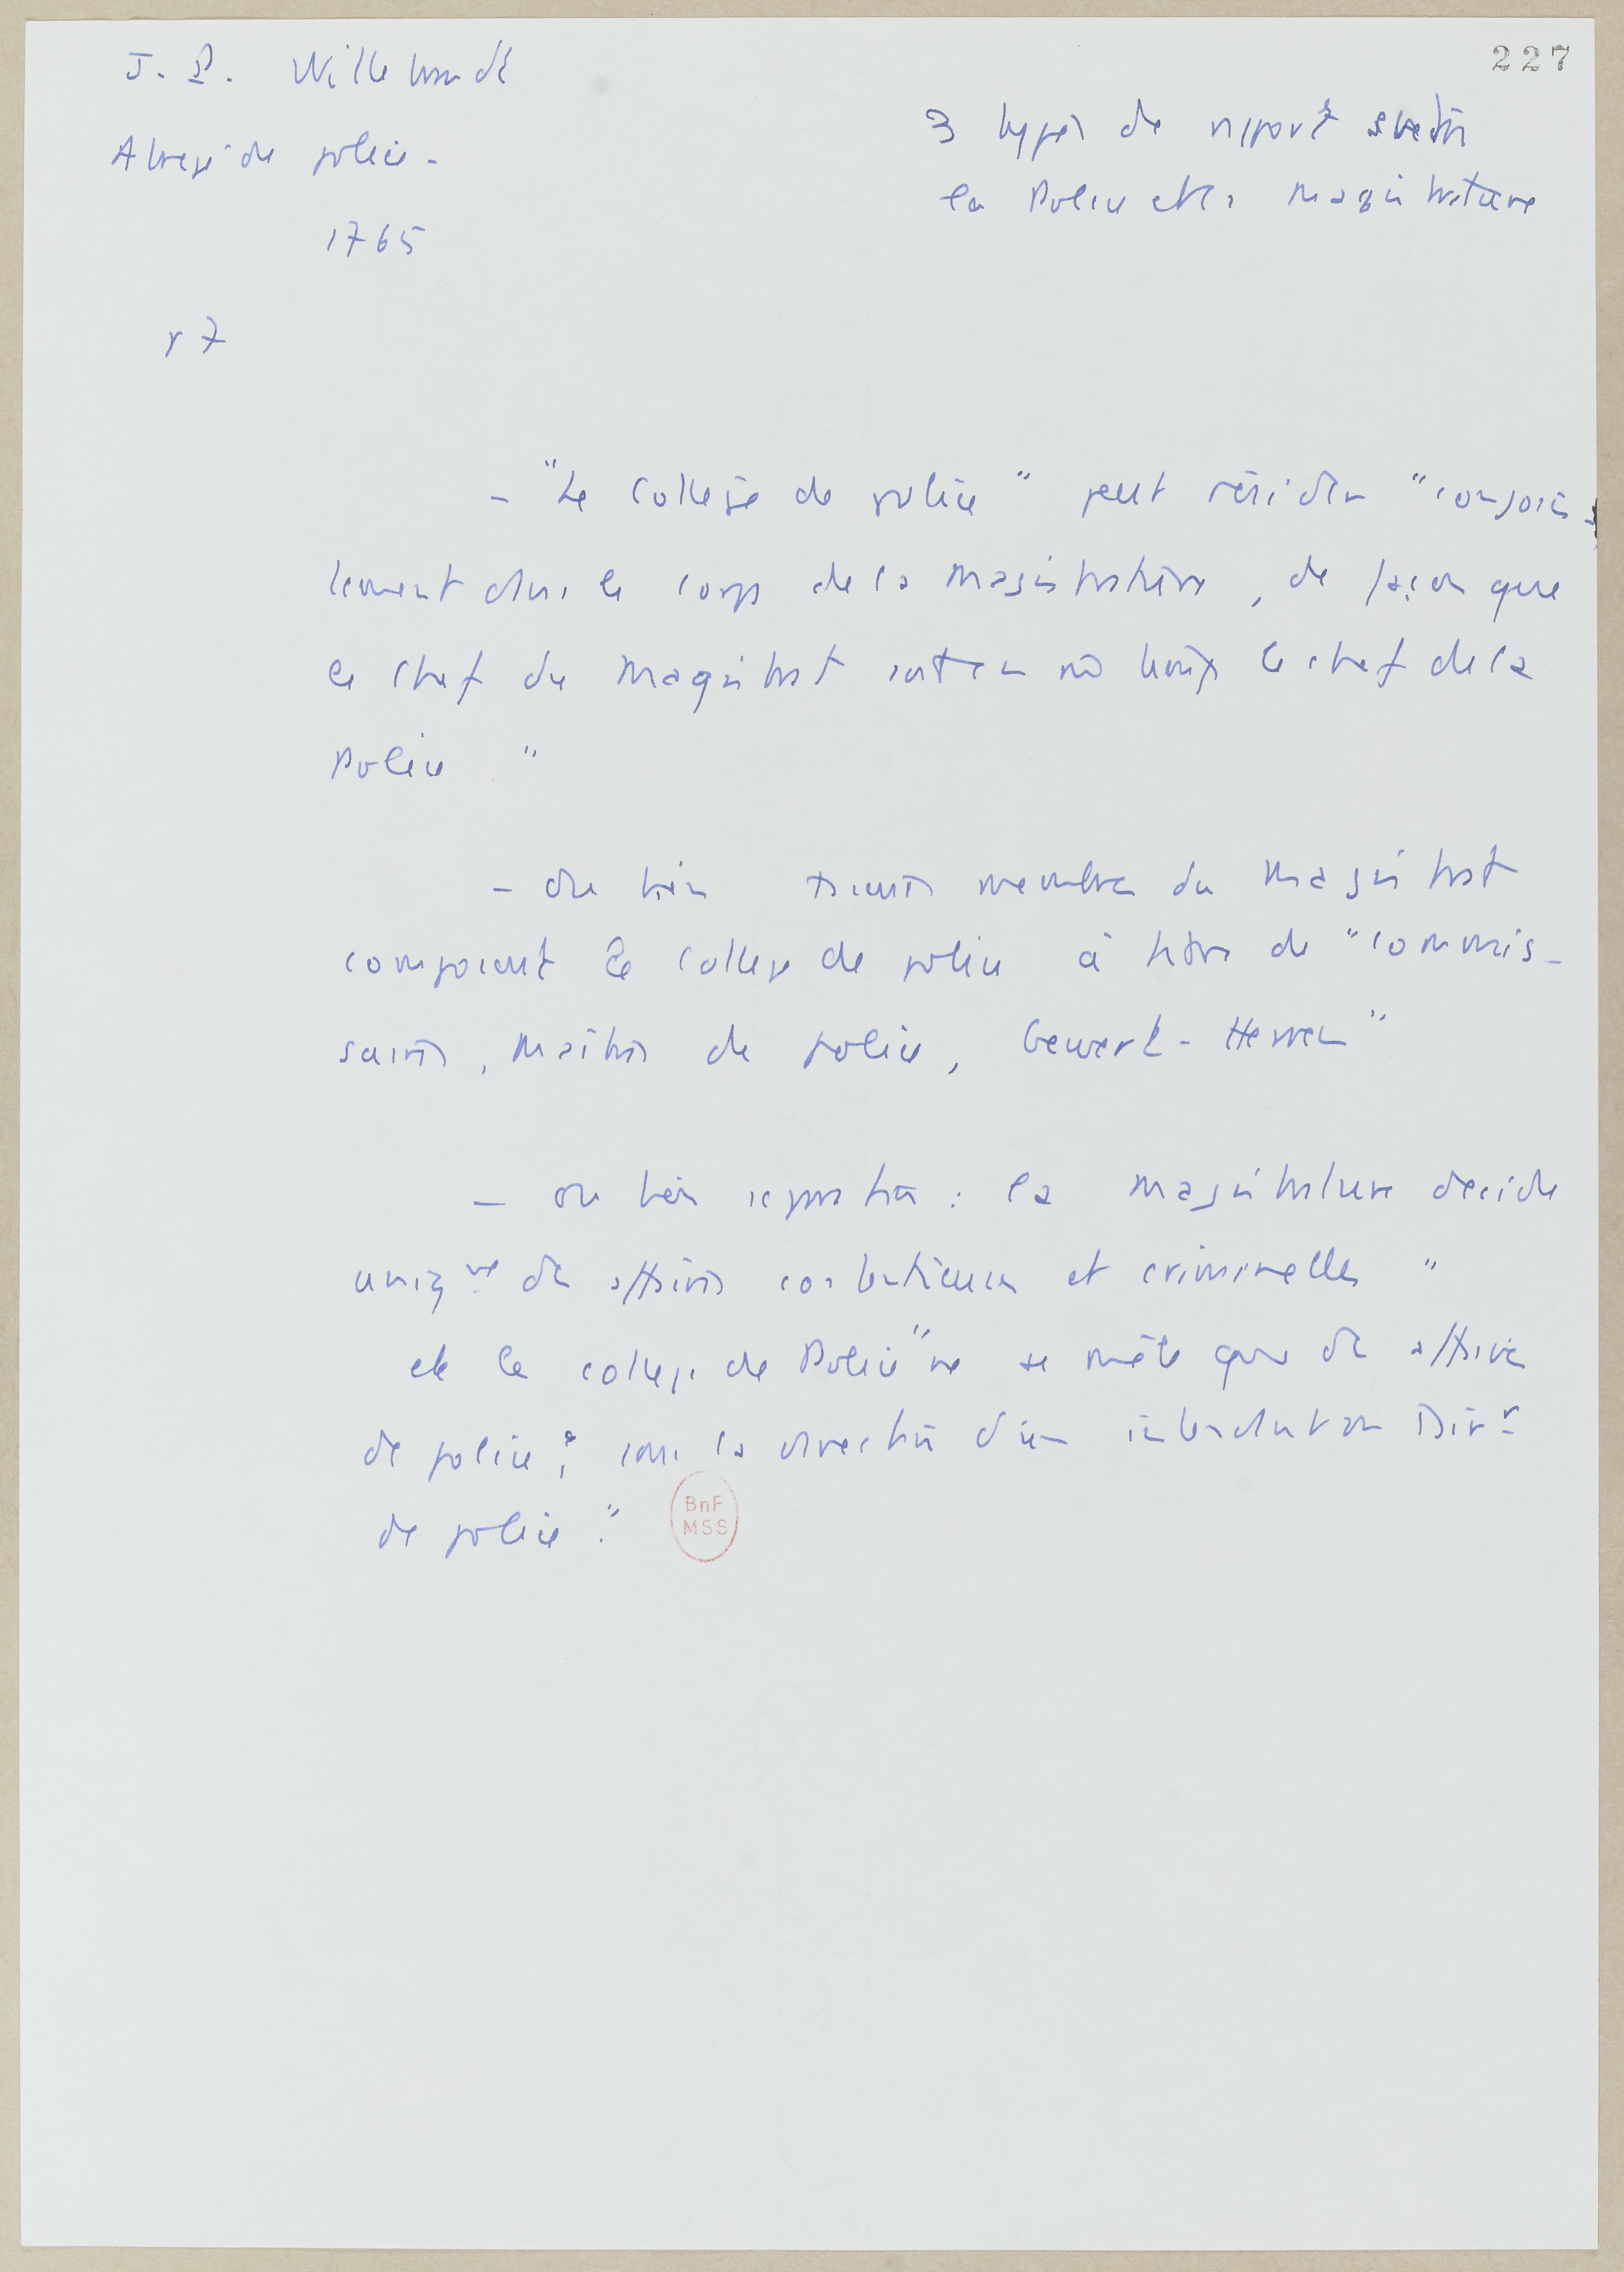 227
J. P. Willebrandt
Abrégé de police.
1765
p 7
3 types de rapports entre
la Police et la Magistrature
- "Le College de police" peut résider "conjoin-
tement dans le corps de la Magistrature, de façon que
le chef du Magistrat est en même temps le chef de la
Police"
- ou bien membres du Magistrat
composent le College de police à titre de "commis-
saires, Maîtres de police, Gewerk-Herren"
- ou bien séparation : la magistrature decide
uniq ve des affaires contentieuses et criminelles "
et le college de Police "ne se mêle que des affaires
de police, sous la direction d'un intendant ou Dir r
de police."
BnF
MSS